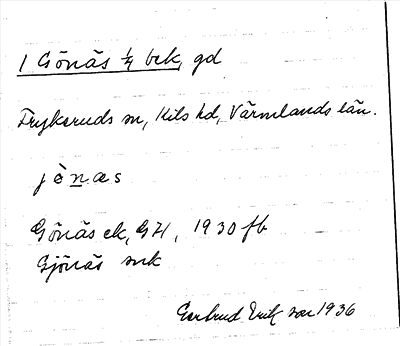 1 Gönäs 1/4 bek, gd
Frykeruds sn, Kils hd, Värmlands län.
jö̀næs
Gönäs ek, GH, 1930 fb
Gjönäs smk
Gertrud Erik 1936